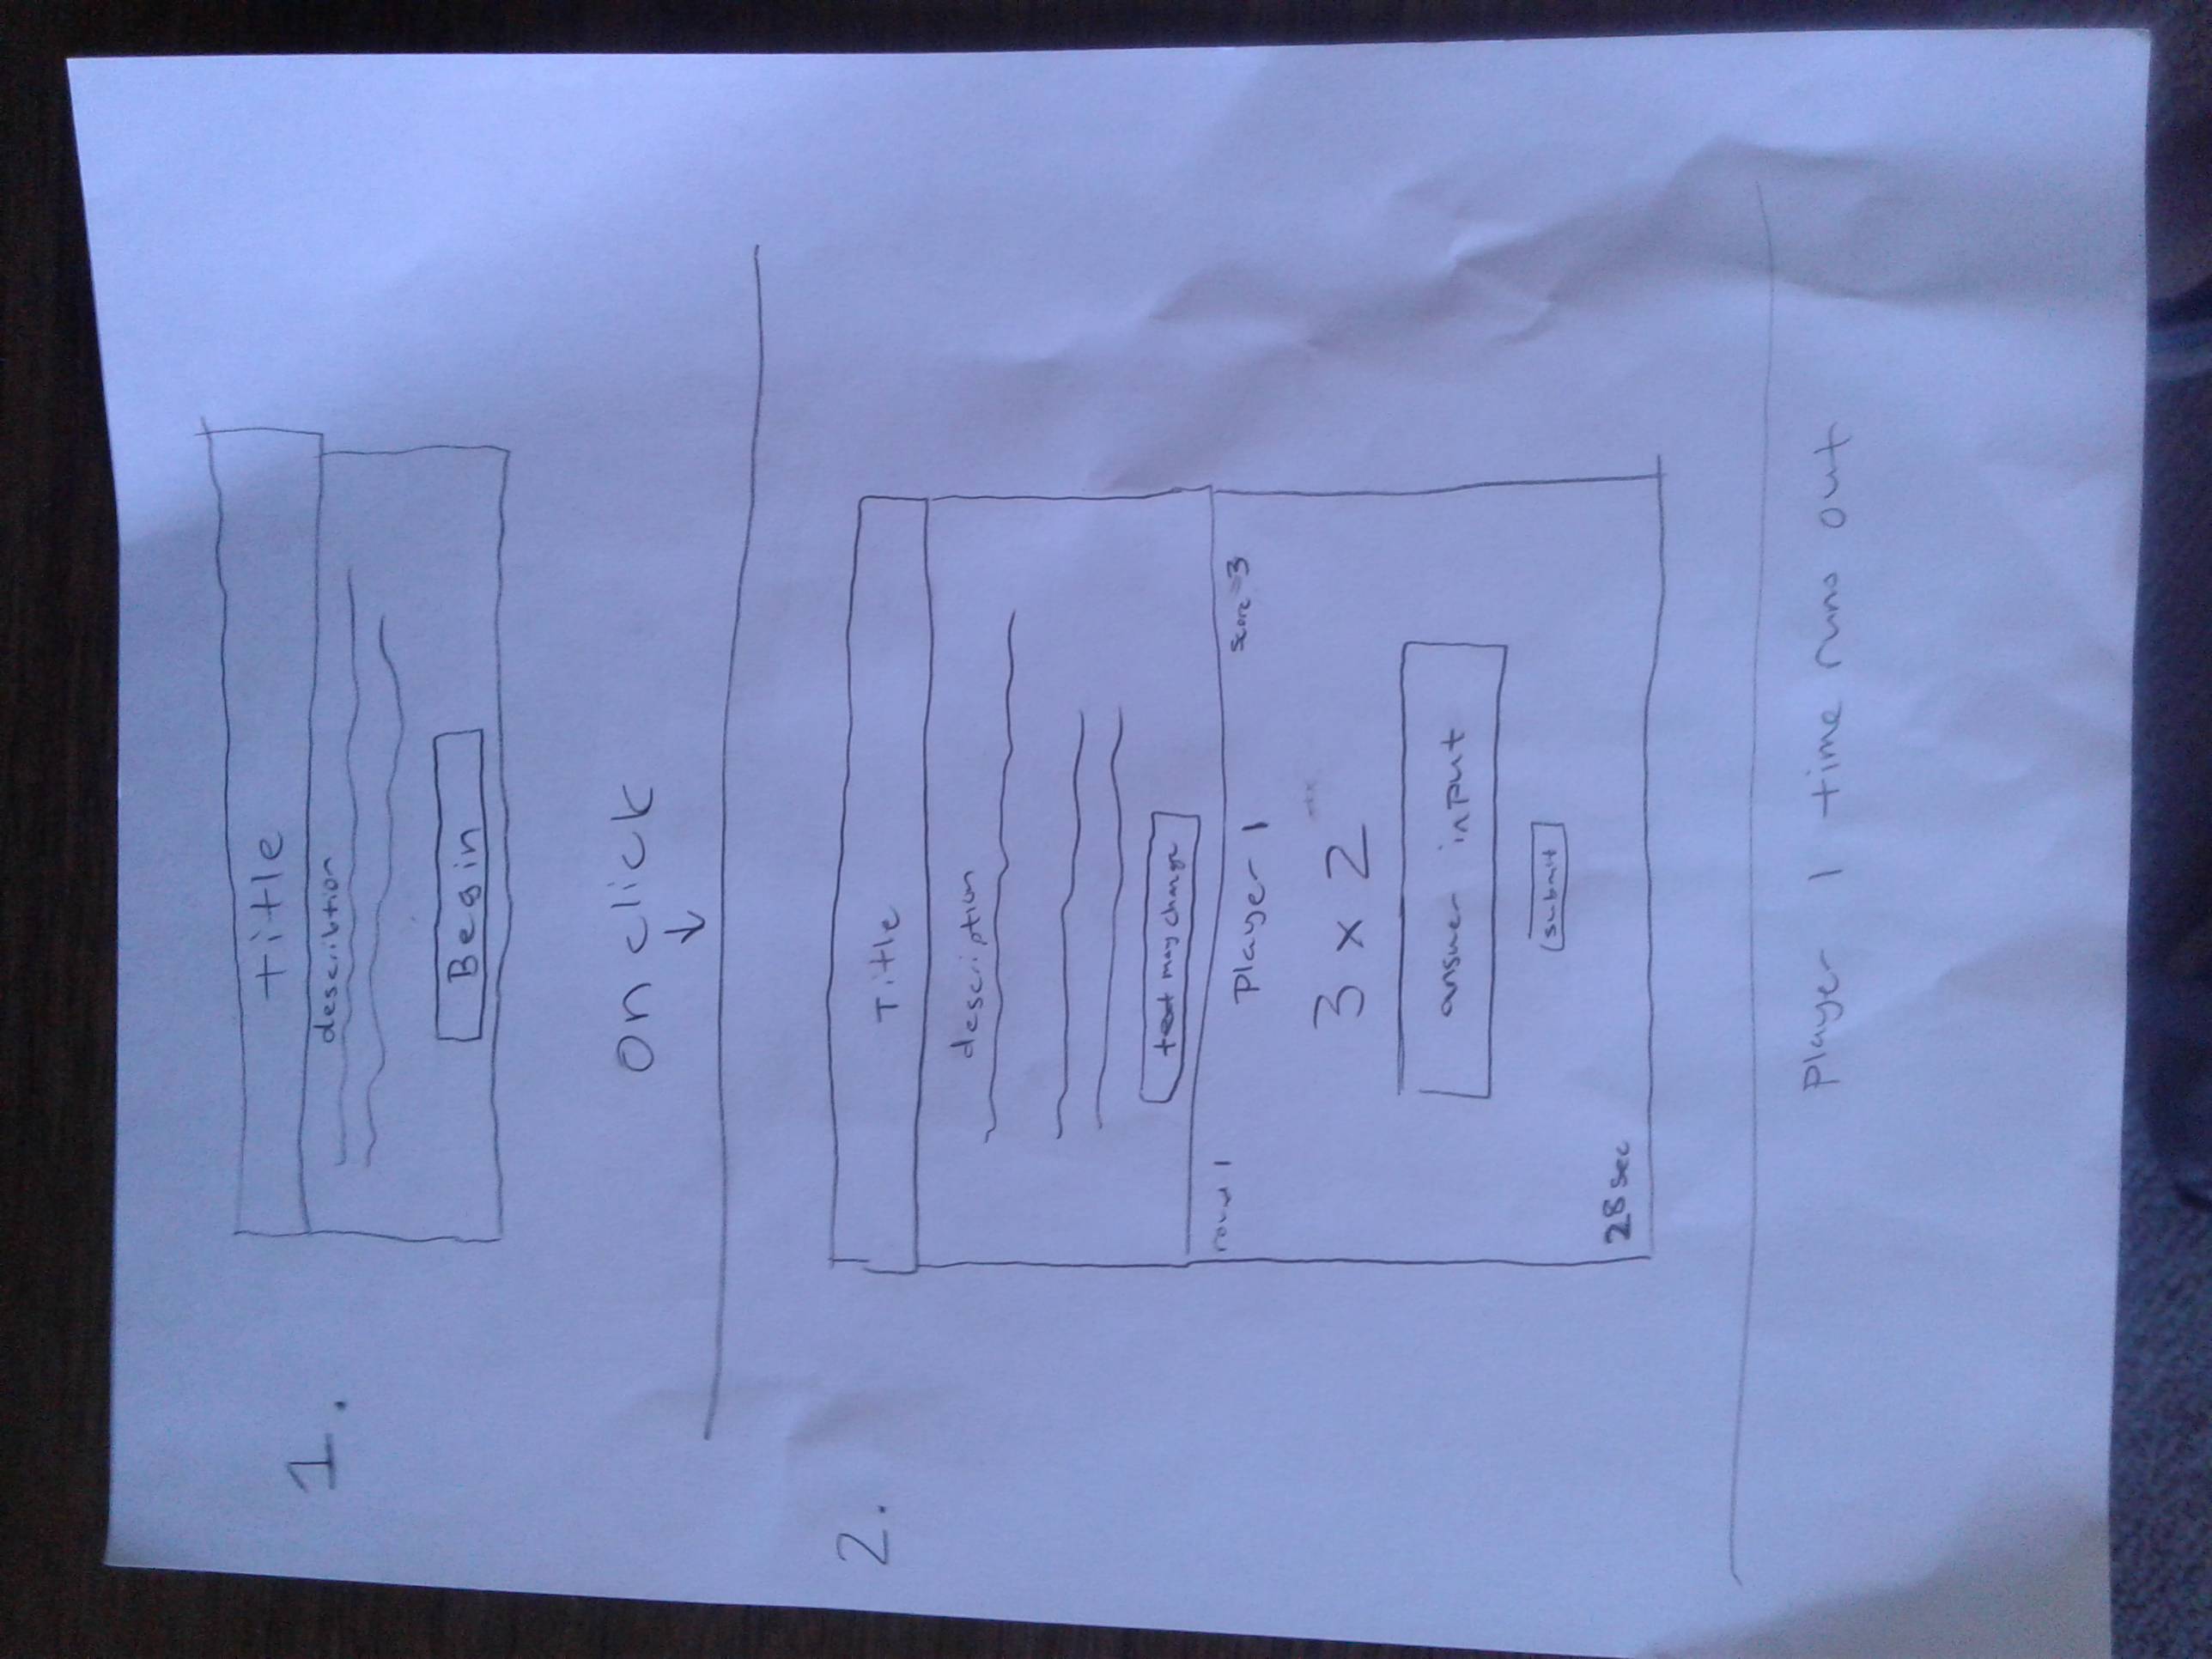 1.
title
describtion
Begin
on click
2.
Title
description
text may change
round 1
Player 1
score = 3
3 x 2
answer input
submit
28 sec
player 1 time runs out